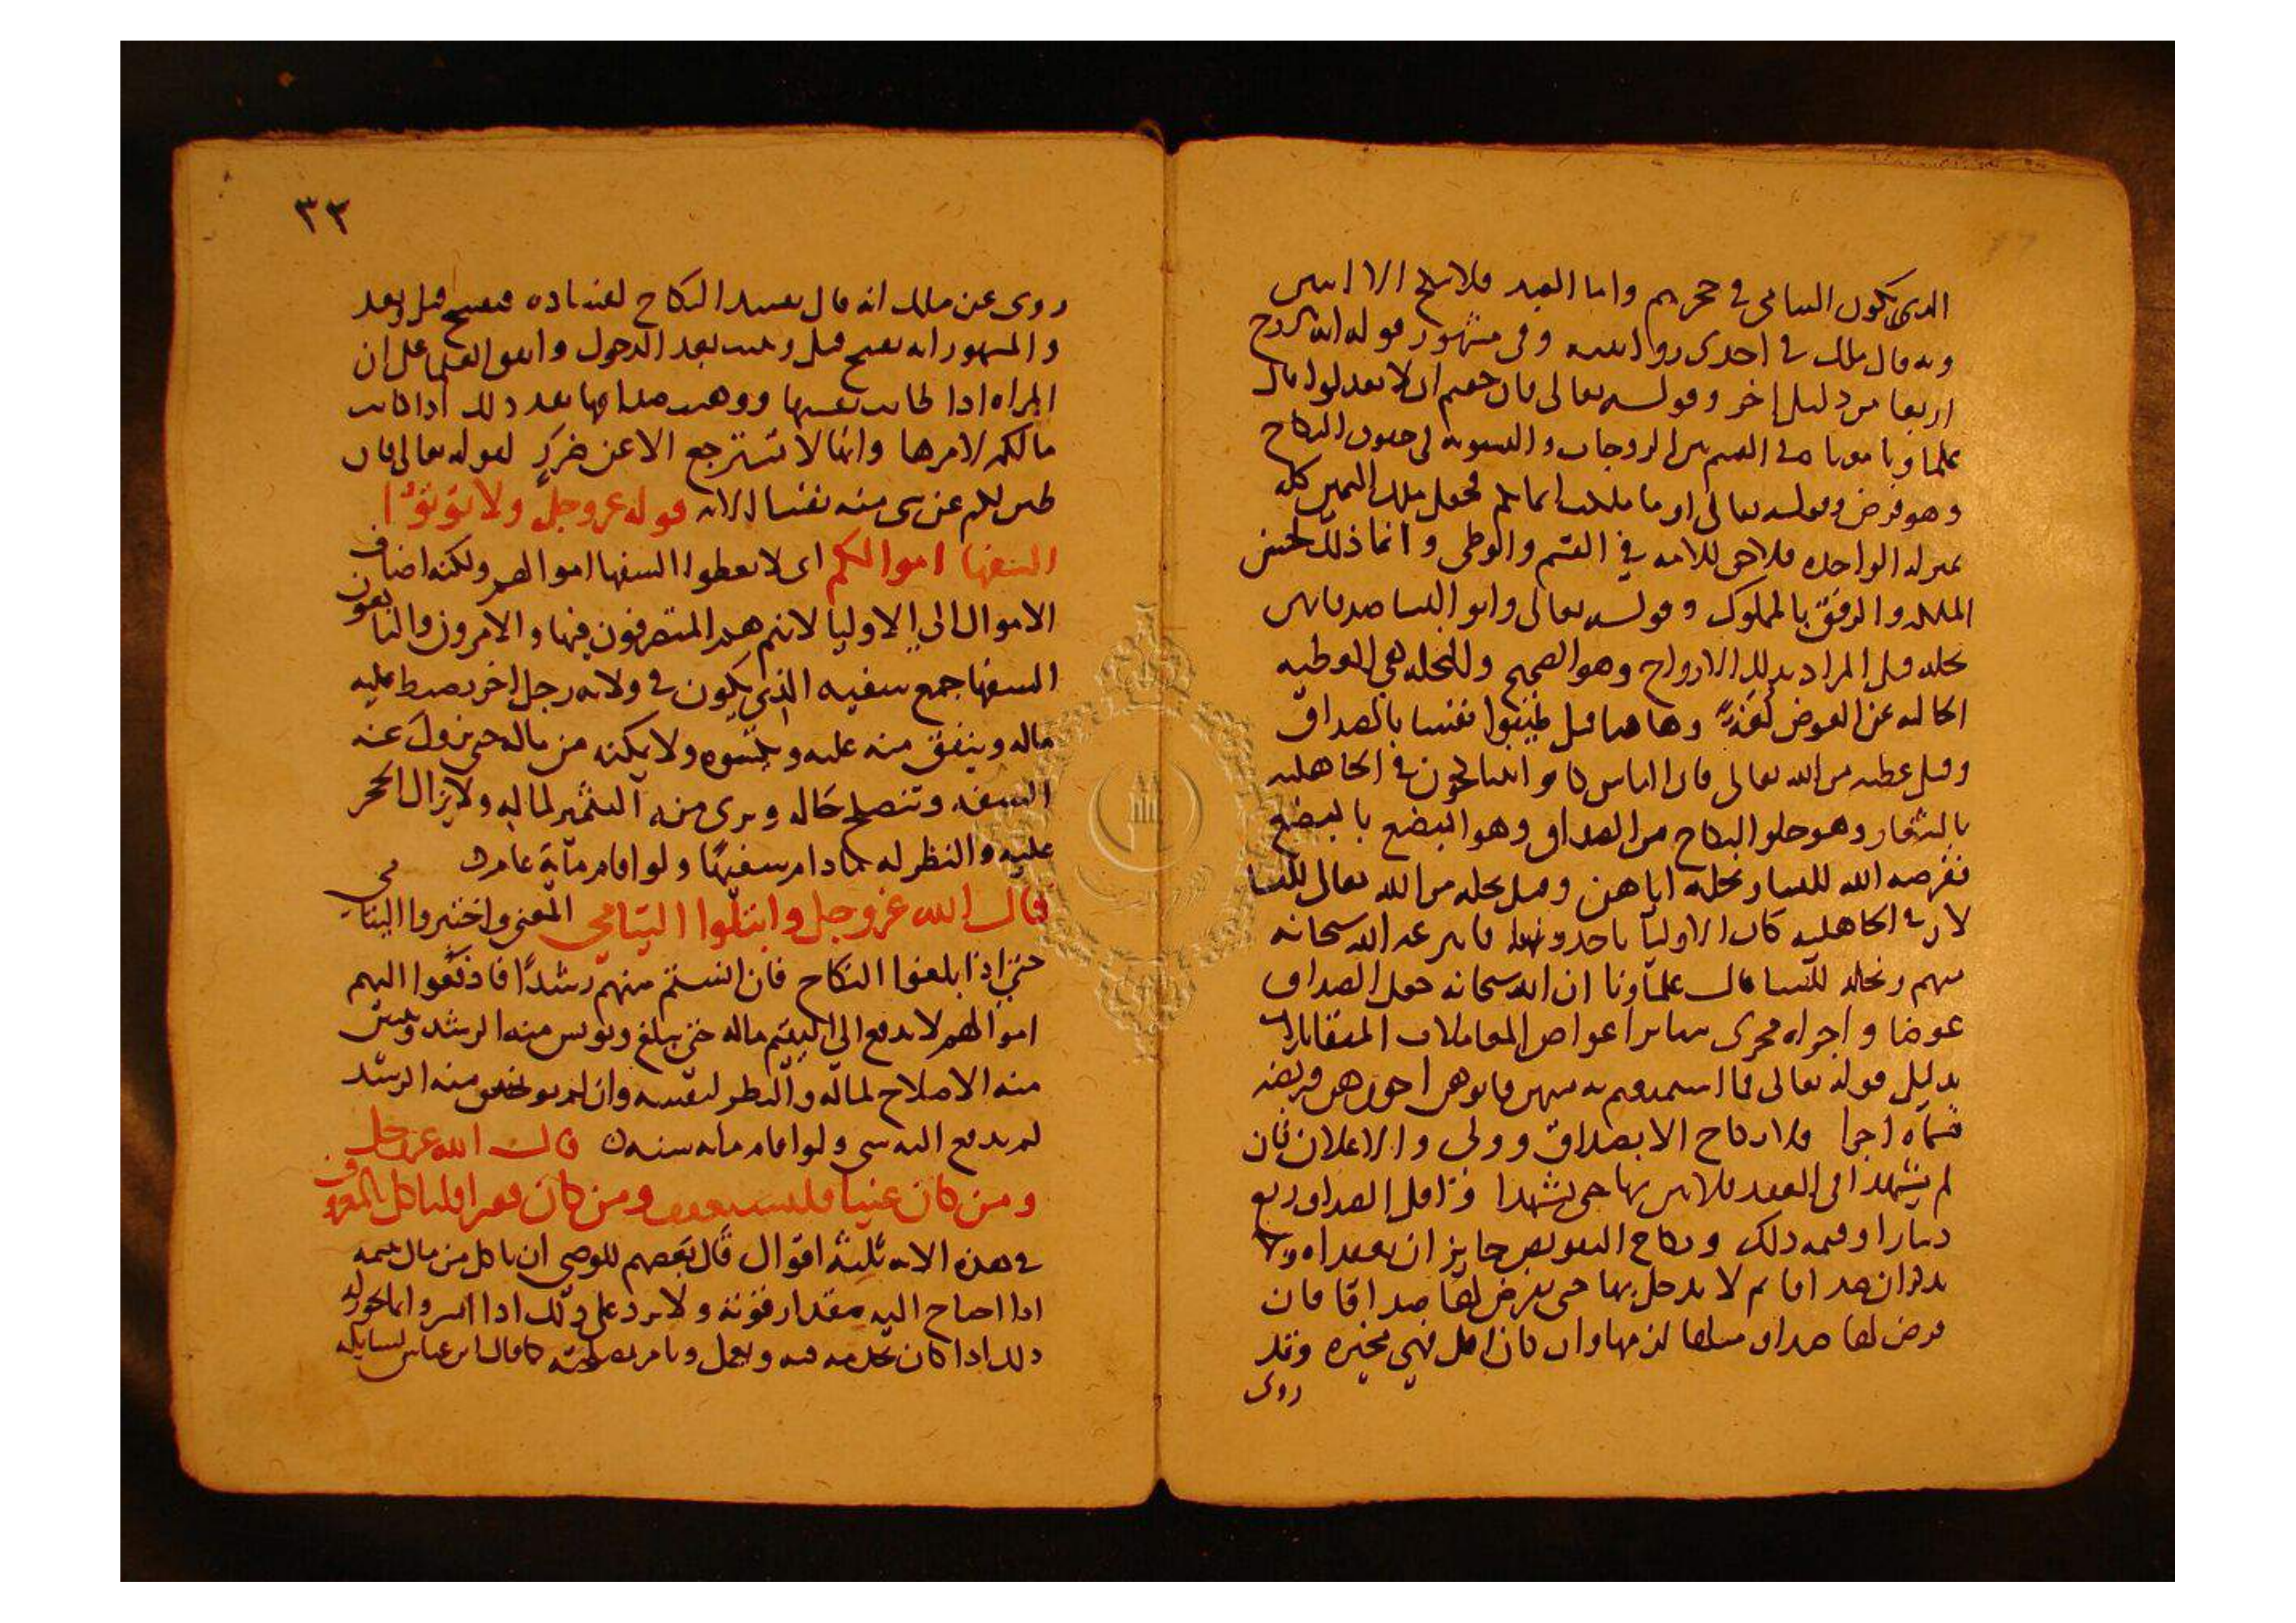 الذي يكون اليتامى في حجرهم واما العبد فلا ينكح الا اثنتين
وبه قال ملك في احدى روايتيه وفي مشهور قوله انه يتزوج
اربعا من دليل اخر وقوله تعالى فان خفتم ان لا تعدلوا قال
علماونا معناه في القسم بين الزوجات والتسوية في حقوق النكاح
وهو فرض وقوله تعالى او ما ملكت ايمانكم فجعل ملك اليمين كله
بمنزلة الواحدة فلا حق للامة في القسم والوطي وانما ذلك لحسن
الملكة والرفق بالمملوك وقوله تعالى واتوا النسا صدقاتهن
نحلة قيل المراد بذلك الازواج وهو الصحيح والنحلة هي العطية
الخالية عن العوض لغة وهاهنا قيل طيبوا نفسا بالصداق
وقيل عطية من الله تعالى فان الناس كانوا يتناكحون في الجاهلية
بالشغار وهو خلو النكاح من الصداق وهو البضع بالبضع
ففرضه الله للنسا ونحله اياهن وقيل نحلة من الله تعالى للنسا
لان في الجاهلية كان الاوليا ياخذونها فانتزعه الله سبحانه
منهم ونحله للنسا قال علماونا ان الله سبحانه جعل الصداق
عوضا واجراه مجرى ساير اعواض المعاملات المتقابلات
بدليل قوله تعالى فما استمتعتم به منهن فاتوهن اجورهن فريضة
فسماه اجرا فلا نكاح الا بصداق وولي والاعلان فان
لم يشهدا في العقد فلا يبن بها حتى يشهدا واقل الصداق ربع
دينار او قيمة ذلك ونكاح التفويض جايز ان يعقداه ولا
يذكران صداقا ثم لا يدخل بها حتى يفرض لها صداقا فان
فرض لها صداق مثلها لزمها وان كان اقل فهي مخيرة وقد
روى
٣٣
روى عن ملك انه قال يفسد النكاح لفساده فيفسخ قبل وبعد
والمشهور انه يفسخ قبل ويثبت بعد الدخول واتفق العلما على ان
المراه اذا طابت نفسها ووهبت صداقها بعد ذلك اذا كانت
مالكة لامرها وانها لا تسترجع الا عن ضرر لقوله تعالى فان
طبن لكم عن شي منه نفسا الاية قوله عز وجل ولا توتوا
السفها اموالكم اي لا تعطوا السفها اموالهم ولكنه اضاف
الاموال الى الاوليا لانهم هم المتصرفون فيها والامرون والناهون
السفها جمع سفيه الذي يكون في ولاية رجل اخر يضبط عليه
ماله وينفق منه عليه ويكسوه ولا يمكنه من ماله حتى يزول عنه
السفه وتنصلح حاله ويرى منه التثمير لماله ولا يزال الحجر
عليه والنظر له ما دام سفيها ولو اقام ماية عام
قال الله عز وجل وابتلوا اليتامى المعنى واختبروا اليتامى
حتى اذا بلغوا النكاح فان انستم منهم رشدا فادفعوا اليهم
اموالهم لا يدفع الى اليتيم ماله حتى يبلغ ويونس منه الرشد
منه الاصلاح لماله والنظر لنفسه وان لم يونس منه الرشد
لم يدفع اليه شي ولو اقام ماية سنة قال الله عز وجل
ومن كان غنيا فليستعفف ومن كان فقيرا فلياكل بالمعروف
في هذه الاية ثلثة اقوال قال بعضهم للوصي ان ياكل من مال يتيمه
اذا احتاج اليه مقدار قوته ولا يرد على ذلك اذا ايسر وانما يجوز له
ذلك اذا كان يخدمه فيه ويعمل ويامر بمصلحته كما قال ابن عباس لسايله